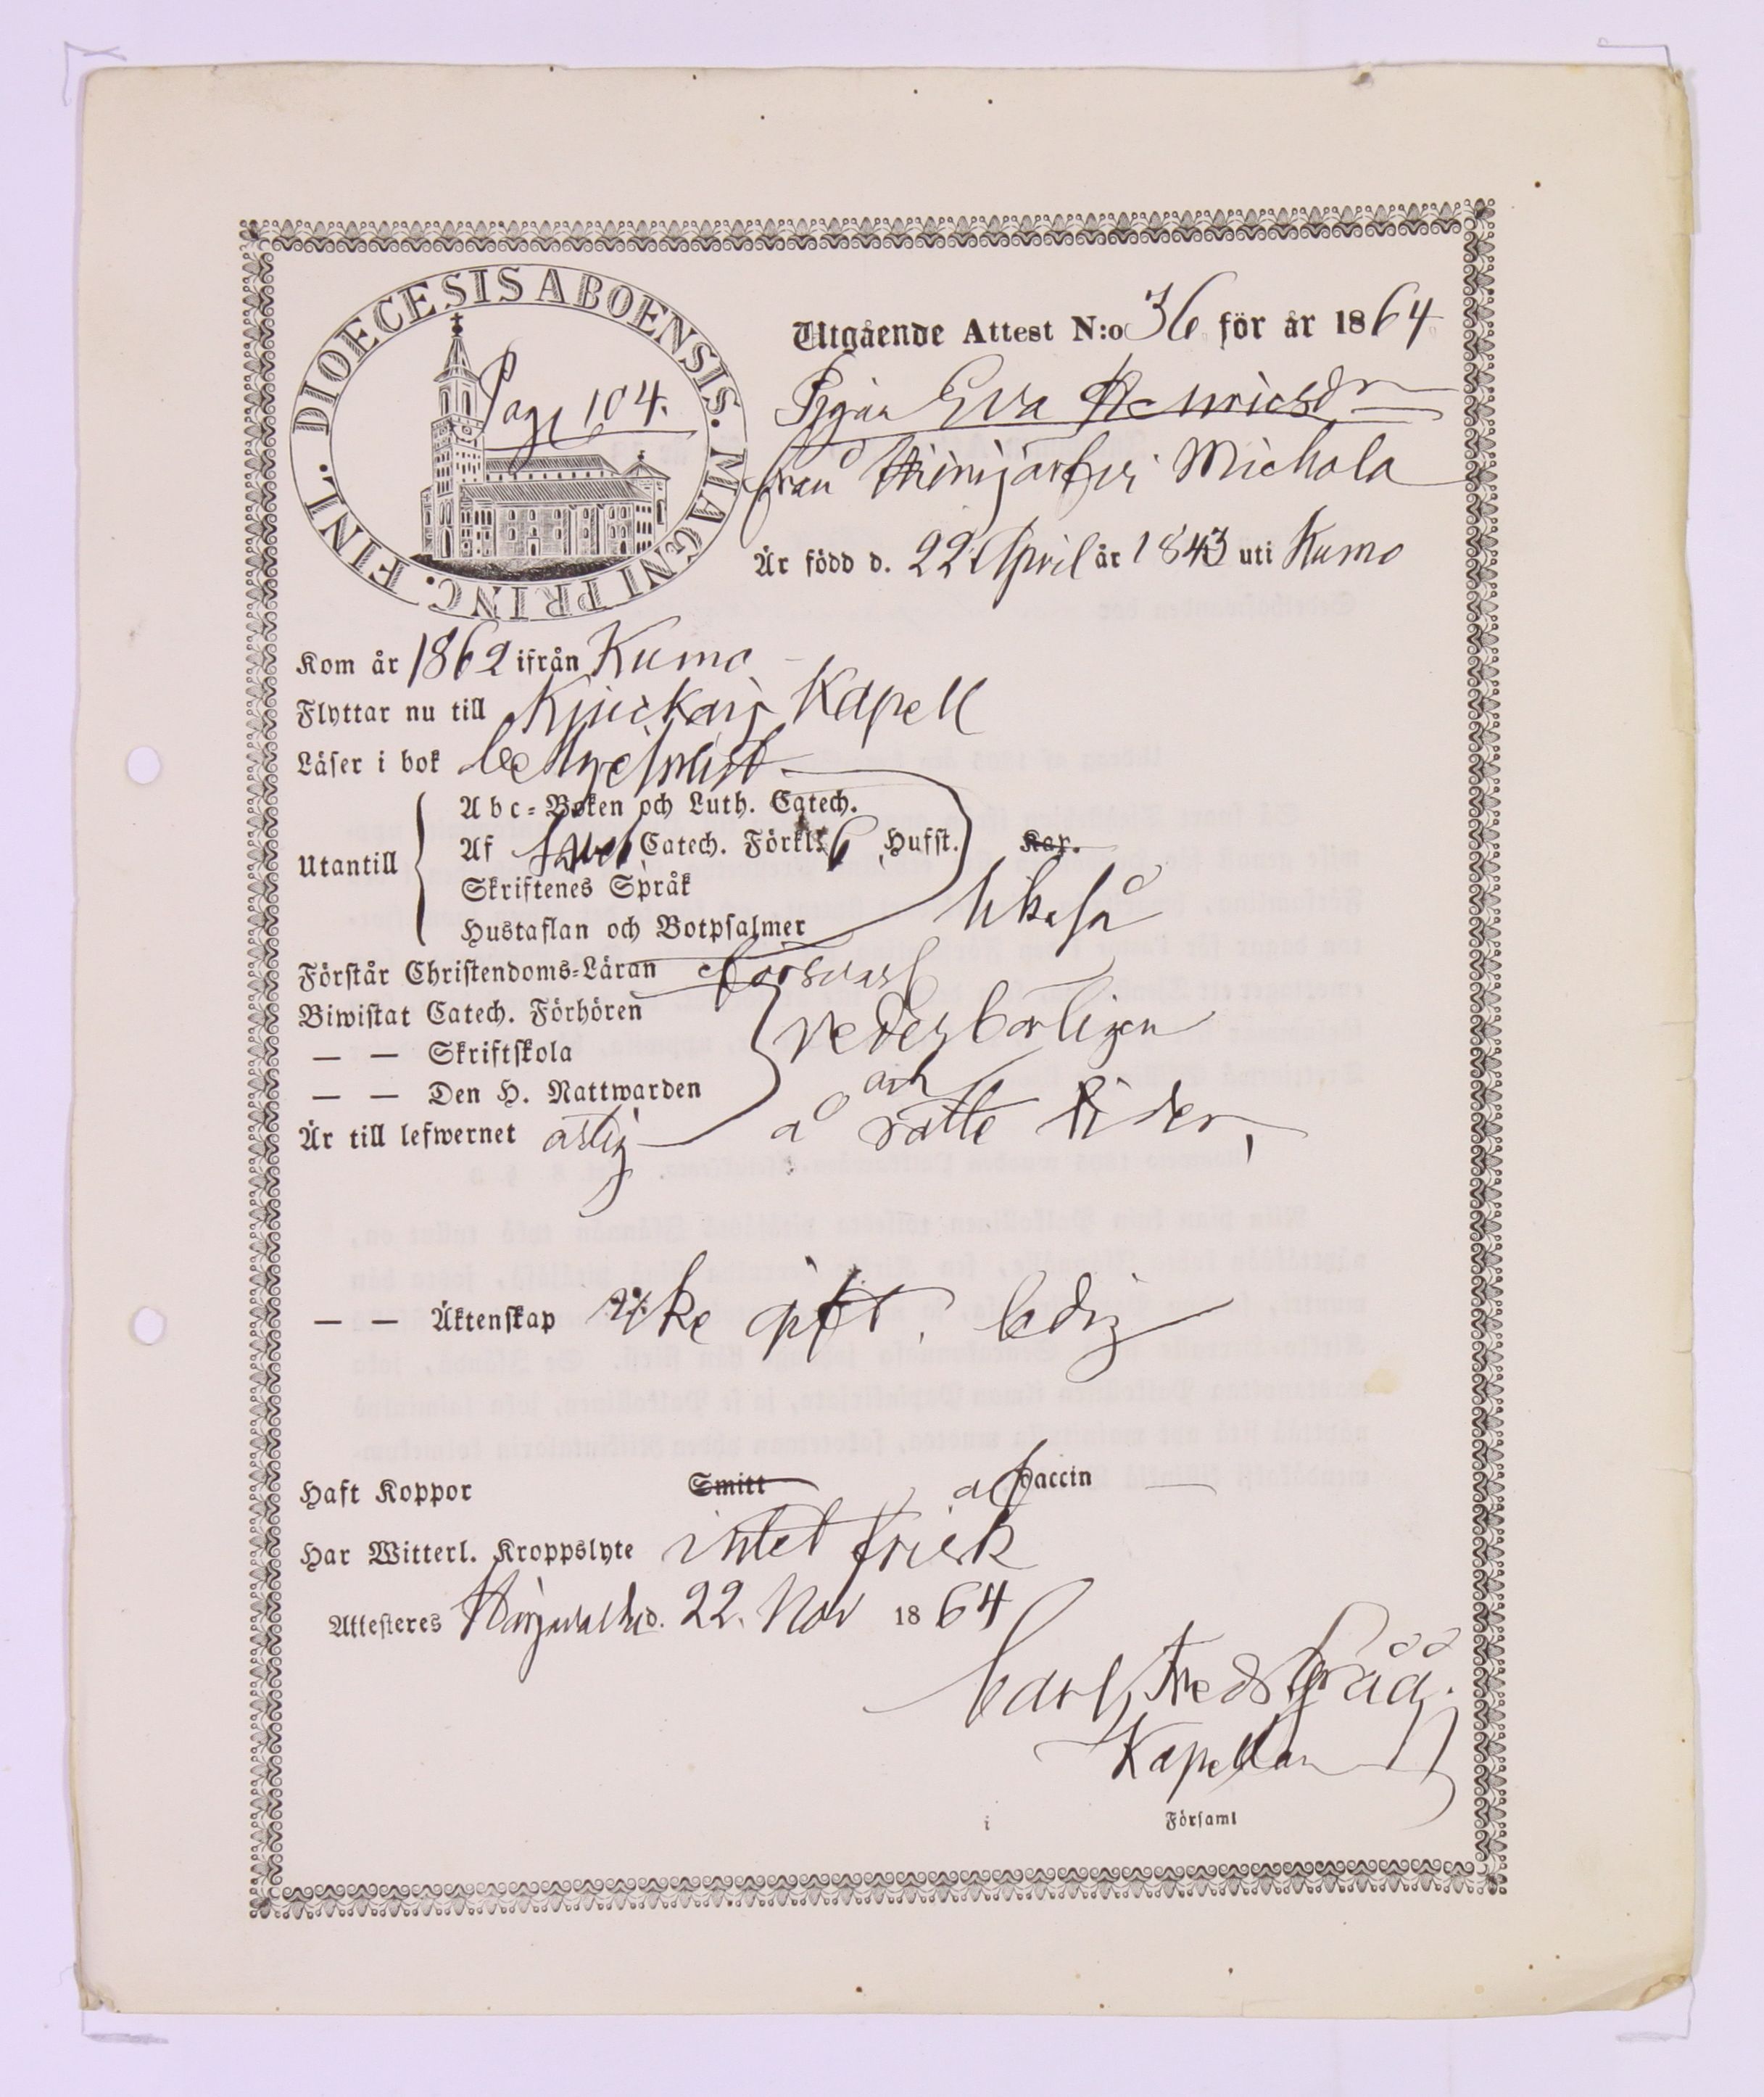 DIOECESIS ABOENSIS. MAGNI PRINC. FINL.
Page 104.
Utgående Attest N:o 36 för år 1864
Pigan Eva Henricsdr
från Michola
Är född d. 22 April år 1843 uti Kumo
Kom år 1862 ifrån Kumo
Flyttar nu till Kjuikais Kapell
Läser i bok
Utantill
Abc-Boken och Luth. Catech.
Af Catech. Förkl: 6 Hufst. Kap.
Skriftenes Språk
Hustaflan och Botpsalmer
likaså
Förstår Christendoms-Läran försvarl
Biwistat Catech. Förhören
— — Skriftskola
— — Den H. Nattwarden
vederbörligen
och
å rätte tider,
Är till lefwernet ärlig
— — Äktenskap icke gift. ledig
Haft Koppor Smitt af Vaccin —
Har Witterl. Kroppslyte intet frisk
Attesteres d. 22. Nov 1864
Carl Fredr Grää.
Kapellan
i Församl